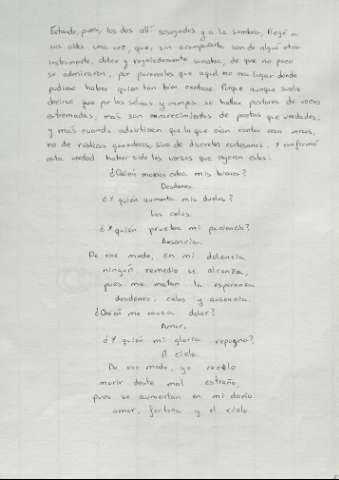 Estando, pues, los dos allí sosegados y a la sombra, llegó a
sus oídos una voz, que, sin acompañarla son de algún otro
instrumento, dulce y regaladamente sonaba, de que no poco
se admiraron, por parecerles que aquél no era lugar donde
pudiese haber quien tan bien cantase. Porque aunque suele
decirse que por las selvas y campos se hallan pastores de voces
estremadas, más son encarecimientos de poetas que verdades;
y más cuando advirtieron que lo que oían cantar eran versos,
no de rústicos ganaderos, sino de discretos cortesanos. Y confirmó
esta verdad haber sido los versos que oyeron estos:
¿Quién menoscaba mis bienes?
Desdenes.
¿Y quién aumenta mis duelos?
Los celos.
¿Y quién prueba mi paciencia?
Ausencia.
De ese modo, en mi dolencia
ningún remedio se alcanza,
pues me matan la esperanza
desdenes, celos y ausencia.
¿Quién me causa dolor?
Amor.
¿Y quién mi gloria repugna?
El cielo.
De ese modo, yo recelo
morir deste mal estraño,
pues se aumentan en mi daño
amor, fortuna y el cielo.